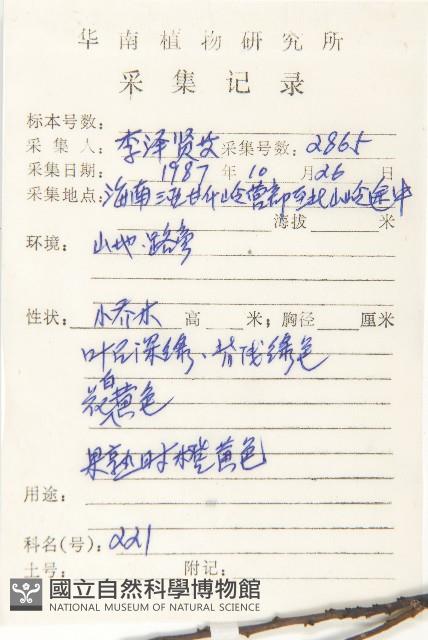 华南植物研究所
采集记录
标本号数:
采集人: 李泽贤 采集号数: 2865
采集日期: 1987年10月26日
采集地点: 海南三亚甘什岭营部至北山岭途中
海拔 米
环境: 山地、路旁
性状: 小乔木 高 米; 胸径 厘米
叶面深绿、背浅绿色
白
黄色
果熟时橙黄色
用途:
科名(号): 221
土号: 附记:
國立自然科學博物館
NATIONAL MUSEUM OF NATURAL SCIENCE